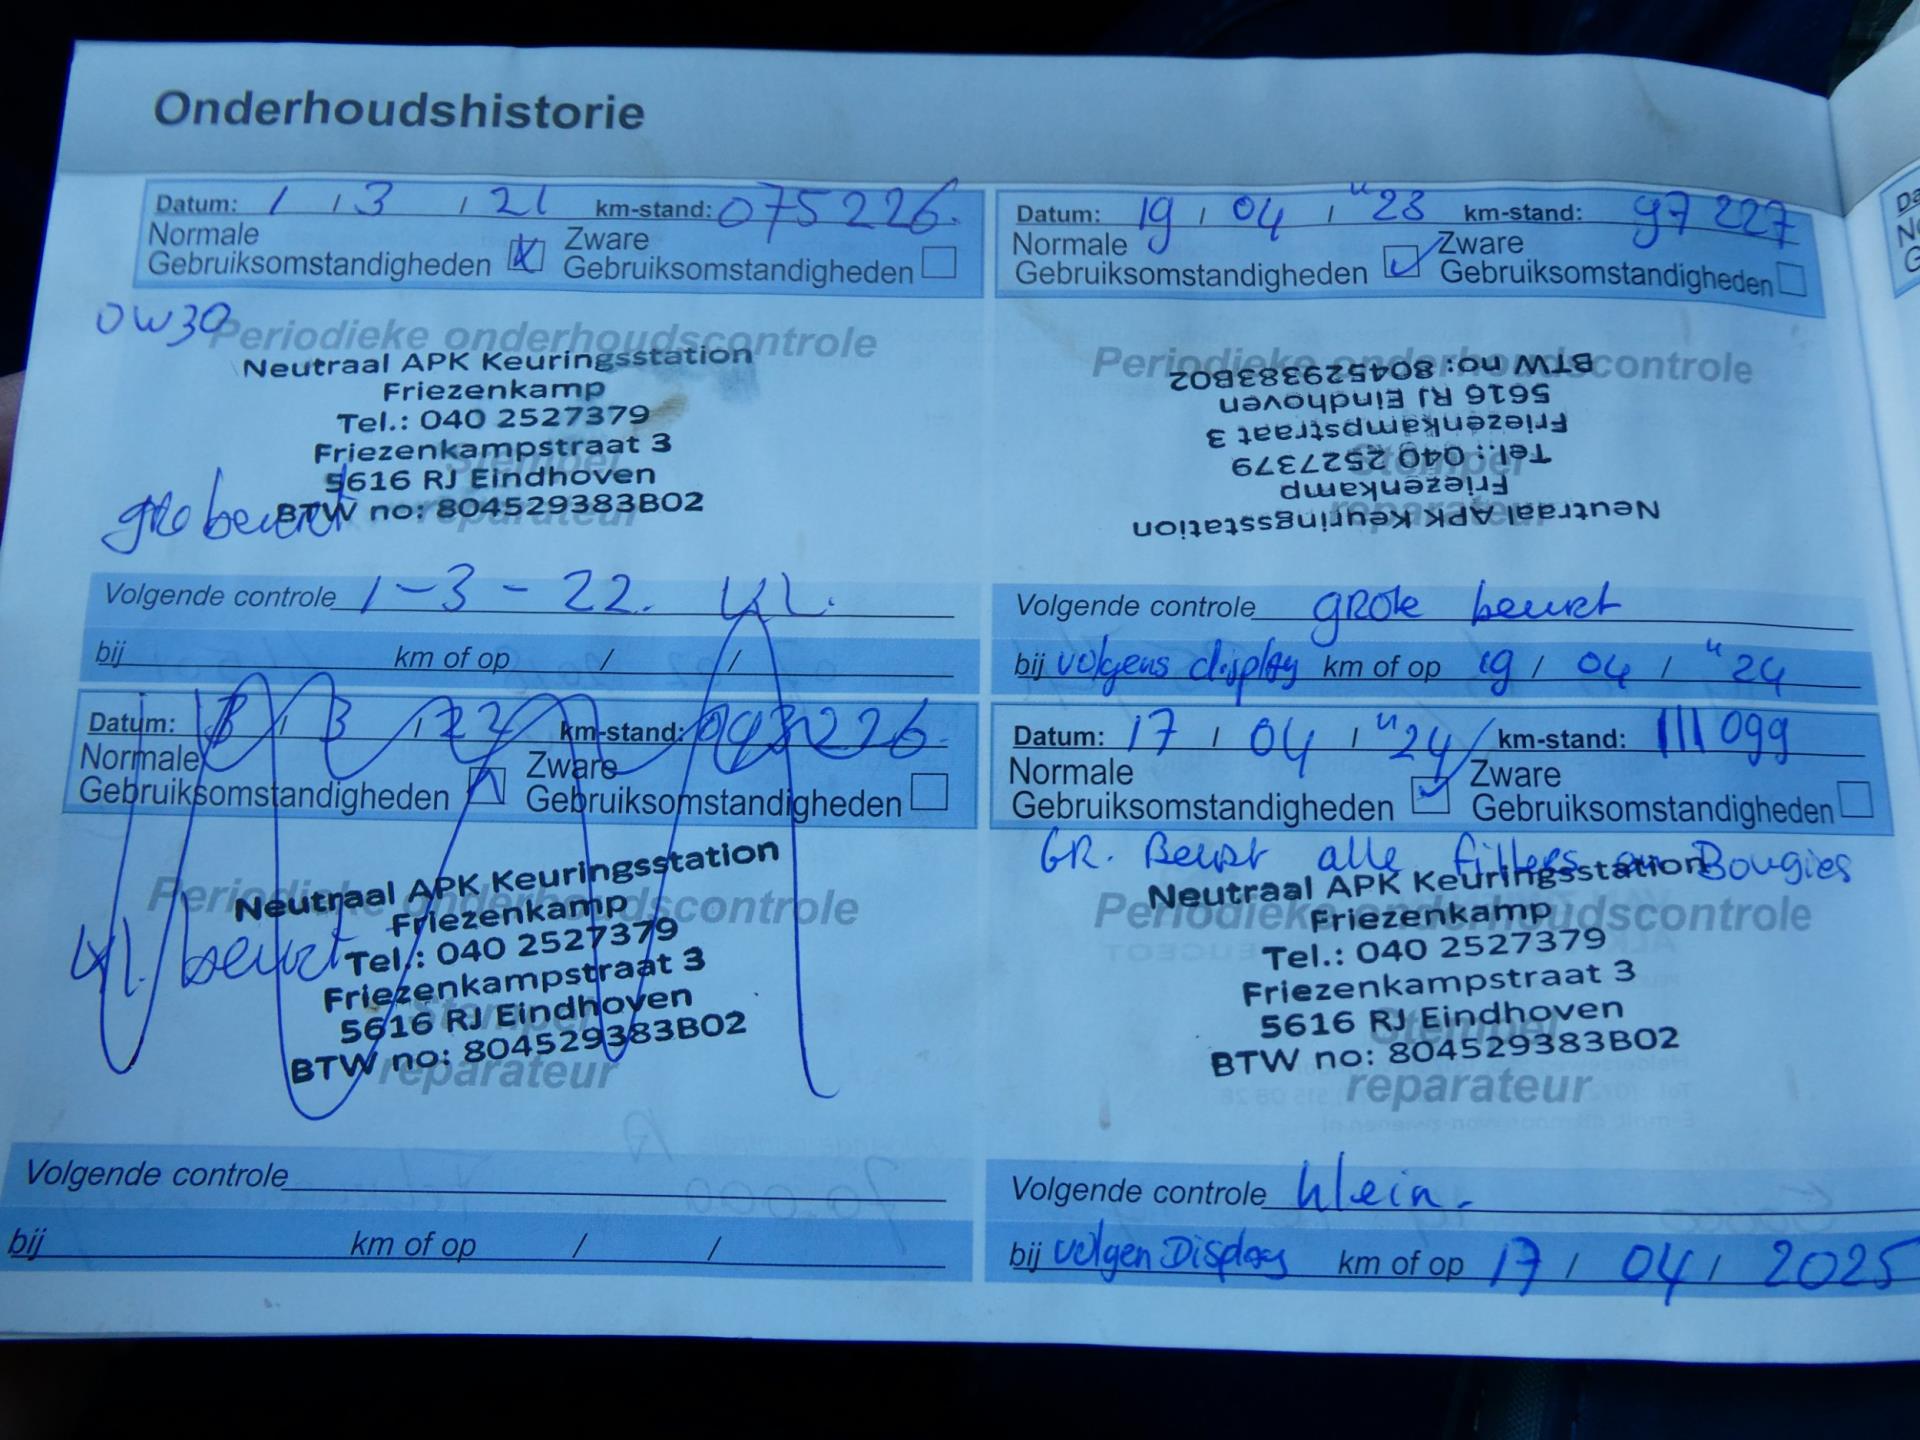 Onderhoudshistorie
Datum: 1 / 3 / 21 km-stand: 075226.
Normale Gebruiksomstandigheden
Zware Gebruiksomstandigheden
0W30
Periodieke onderhoudscontrole
Neutraal APK Keuringsstation
Friezenkamp
Tel.: 040 2527379
Friezenkampstraat 3
5616 RJ Eindhoven
BTW no: 804529383B02
Stempel
reparateur
gro beurt
Volgende controle 1-3-22. kl.
bij km of op / /
Datum: / 3 / 22 km-stand: 226.
Normale Gebruiksomstandigheden
Zware Gebruiksomstandigheden
Periodieke onderhoudscontrole
Neutraal APK Keuringsstation
Friezenkamp
kl. beurt
Tel.: 040 2527379
Friezenkampstraat 3
5616 RJ Eindhoven
BTW no: 804529383B02
Stempel
reparateur
Volgende controle
bij km of op / /
Datum: 19 / 04 / "23 km-stand: 97227
Normale Gebruiksomstandigheden
Zware Gebruiksomstandigheden
Periodieke onderhoudscontrole
Stempel
reparateur
Neutraal APK Keuringsstation
Friezenkamp
Tel.: 040 2527379
Friezenkampstraat 3
5616 RJ Eindhoven
BTW no: 804529383B02
Volgende controle grote beurt
bij volgens display km of op 19 / 04 / "24
Datum: 17 / 04 / "24 km-stand: 111099
Normale Gebruiksomstandigheden
Zware Gebruiksomstandigheden
GR. Beurt alle filters en Bougies
Neutraal APK Keuringsstation
Periodieke onderhoudscontrole
Friezenkamp
Tel.: 040 2527379
Friezenkampstraat 3
5616 RJ Eindhoven
BTW no: 804529383B02
Stempel
reparateur
Volgende controle klein.
bij volgen Display km of op 17 / 04 / 2025